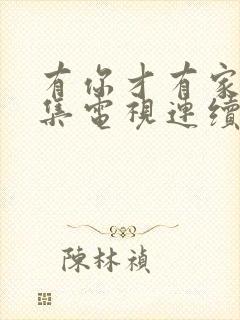 有你才有家
集電視連續
陳林禎